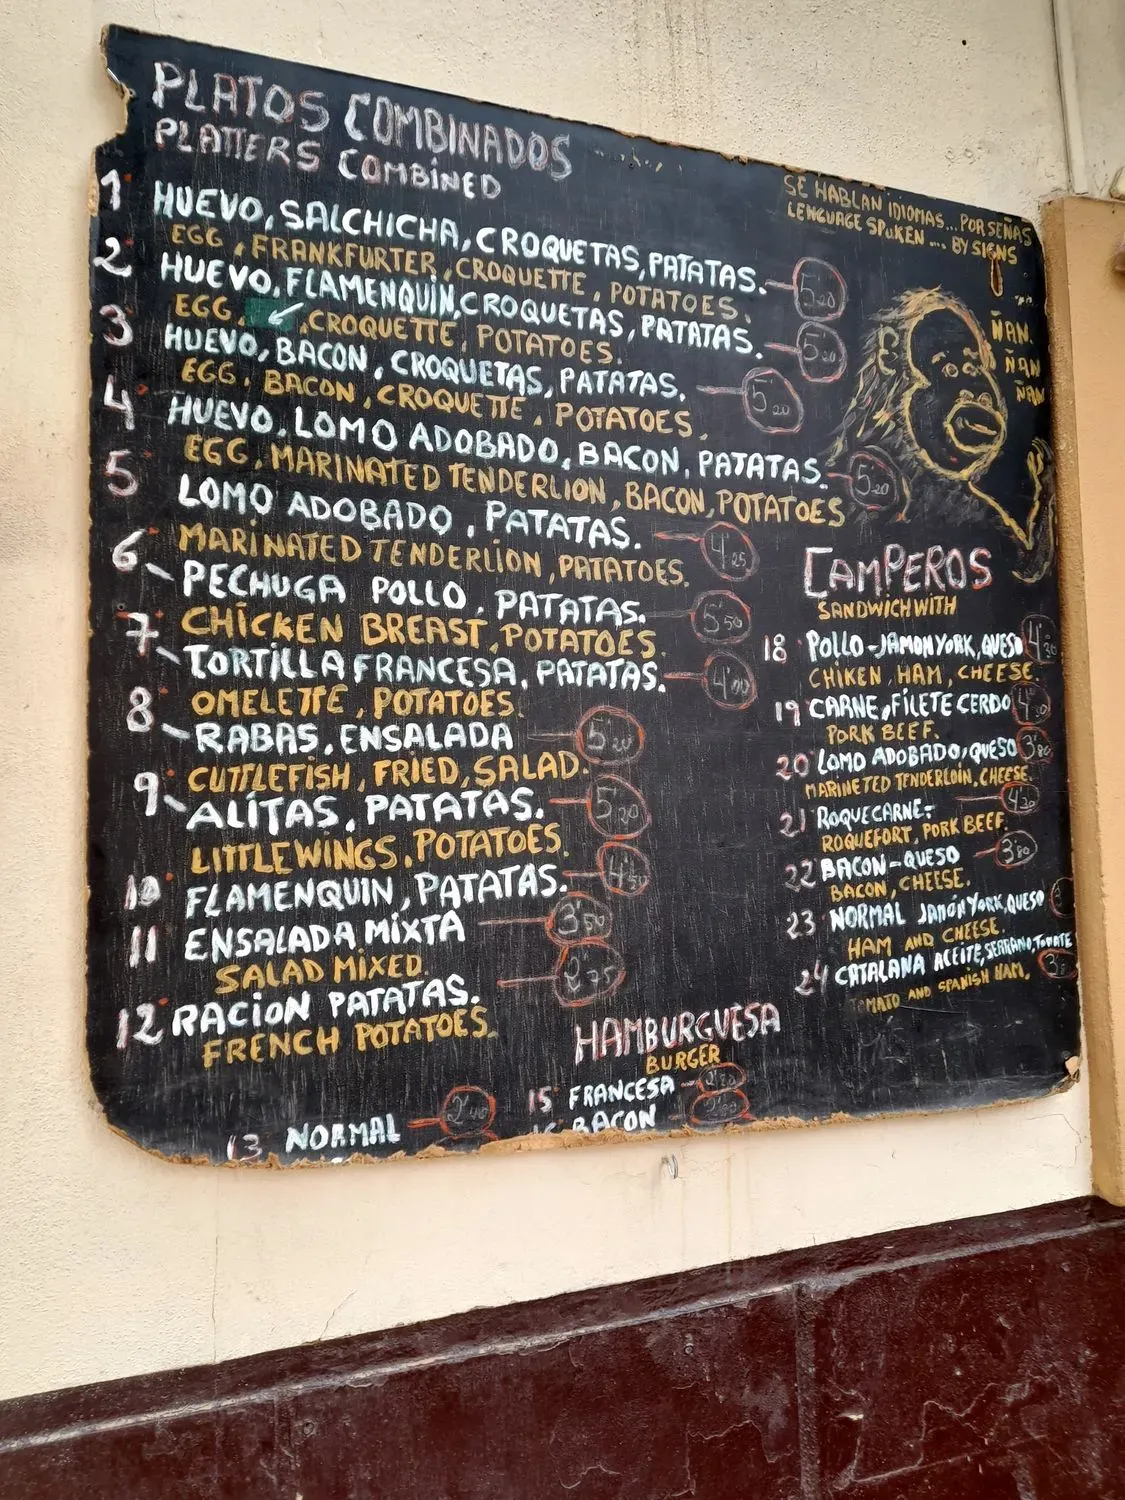 PLATOS COMBINADOS
PLATTERS COMBINED
1 HUEVO, SALCHICHA, CROQUETAS, PATATAS. 5'20
EGG, FRANKFURTER, CROQUETTE, POTATOES.
2 HUEVO, FLAMENQUÍN, CROQUETAS, PATATAS. 5'20
EGG, ,CROQUETTE, POTATOES.
3 HUEVO, BACON, CROQUETAS, PATATAS. 5'20
EGG, BACON, CROQUETTE, POTATOES.
4 HUEVO, LOMO ADOBADO, BACON, PATATAS. 5'20
EGG, MARINATED TENDERLION, BACON, POTATOES
5 LOMO ADOBADO, PATATAS. 4'25
MARINATED TENDERLIÓN, PATATOES.
6 PECHUGA POLLO, PATATAS. 5'50
CHICKEN BREAST, POTATOES.
7 TORTILLA FRANCESA, PATATAS. 4'00
OMELETTE, POTATOES.
8 RABAS, ENSALADA 5'20
CUTTLEFISH, FRIED, SALAD.
9 ALÍTAS, PATATAS. 5'20
LITTLEWINGS, POTATOES.
10 FLAMENQUIN, PATATAS. 4'50
11 ENSALADA MIXTA 3'50
SALAD MIXED.
12 RACION PATATAS. 2'75
FRENCH POTATOES.
13 NORMAL 2'40
SE HABLAN IDIOMAS... POR SEÑAS
LENGUAGE SPOKEN ... BY SIGNS
ÑAN.
ÑAN
ÑAN
CAMPEROS
SANDWICH WITH
18 POLLO-JAMON YORK, QUESO 4'30
CHIKEN, HAM, CHEESE.
19 CARNE, FÍLETE CERDO
PORK BEEF.
20 LOMO ADOBADO, QUESO 3'80
MARINETED TENDERLOIN, CHEESE.
21 ROQUECARNE- 4'20
ROQUEFORT, PORK BEEF.
22 BACON-QUESO 3'80
BACON, CHEESE.
23 NORMAL JAMÓN YORK, QUESO
HAM AND CHEESE.
24 CATALANA ACEITE, SERRANO, TOMATE
TOMATO AND SPANISH HAM,
HAMBURGUESA
BURGER
15 FRANCESA
16 BACON